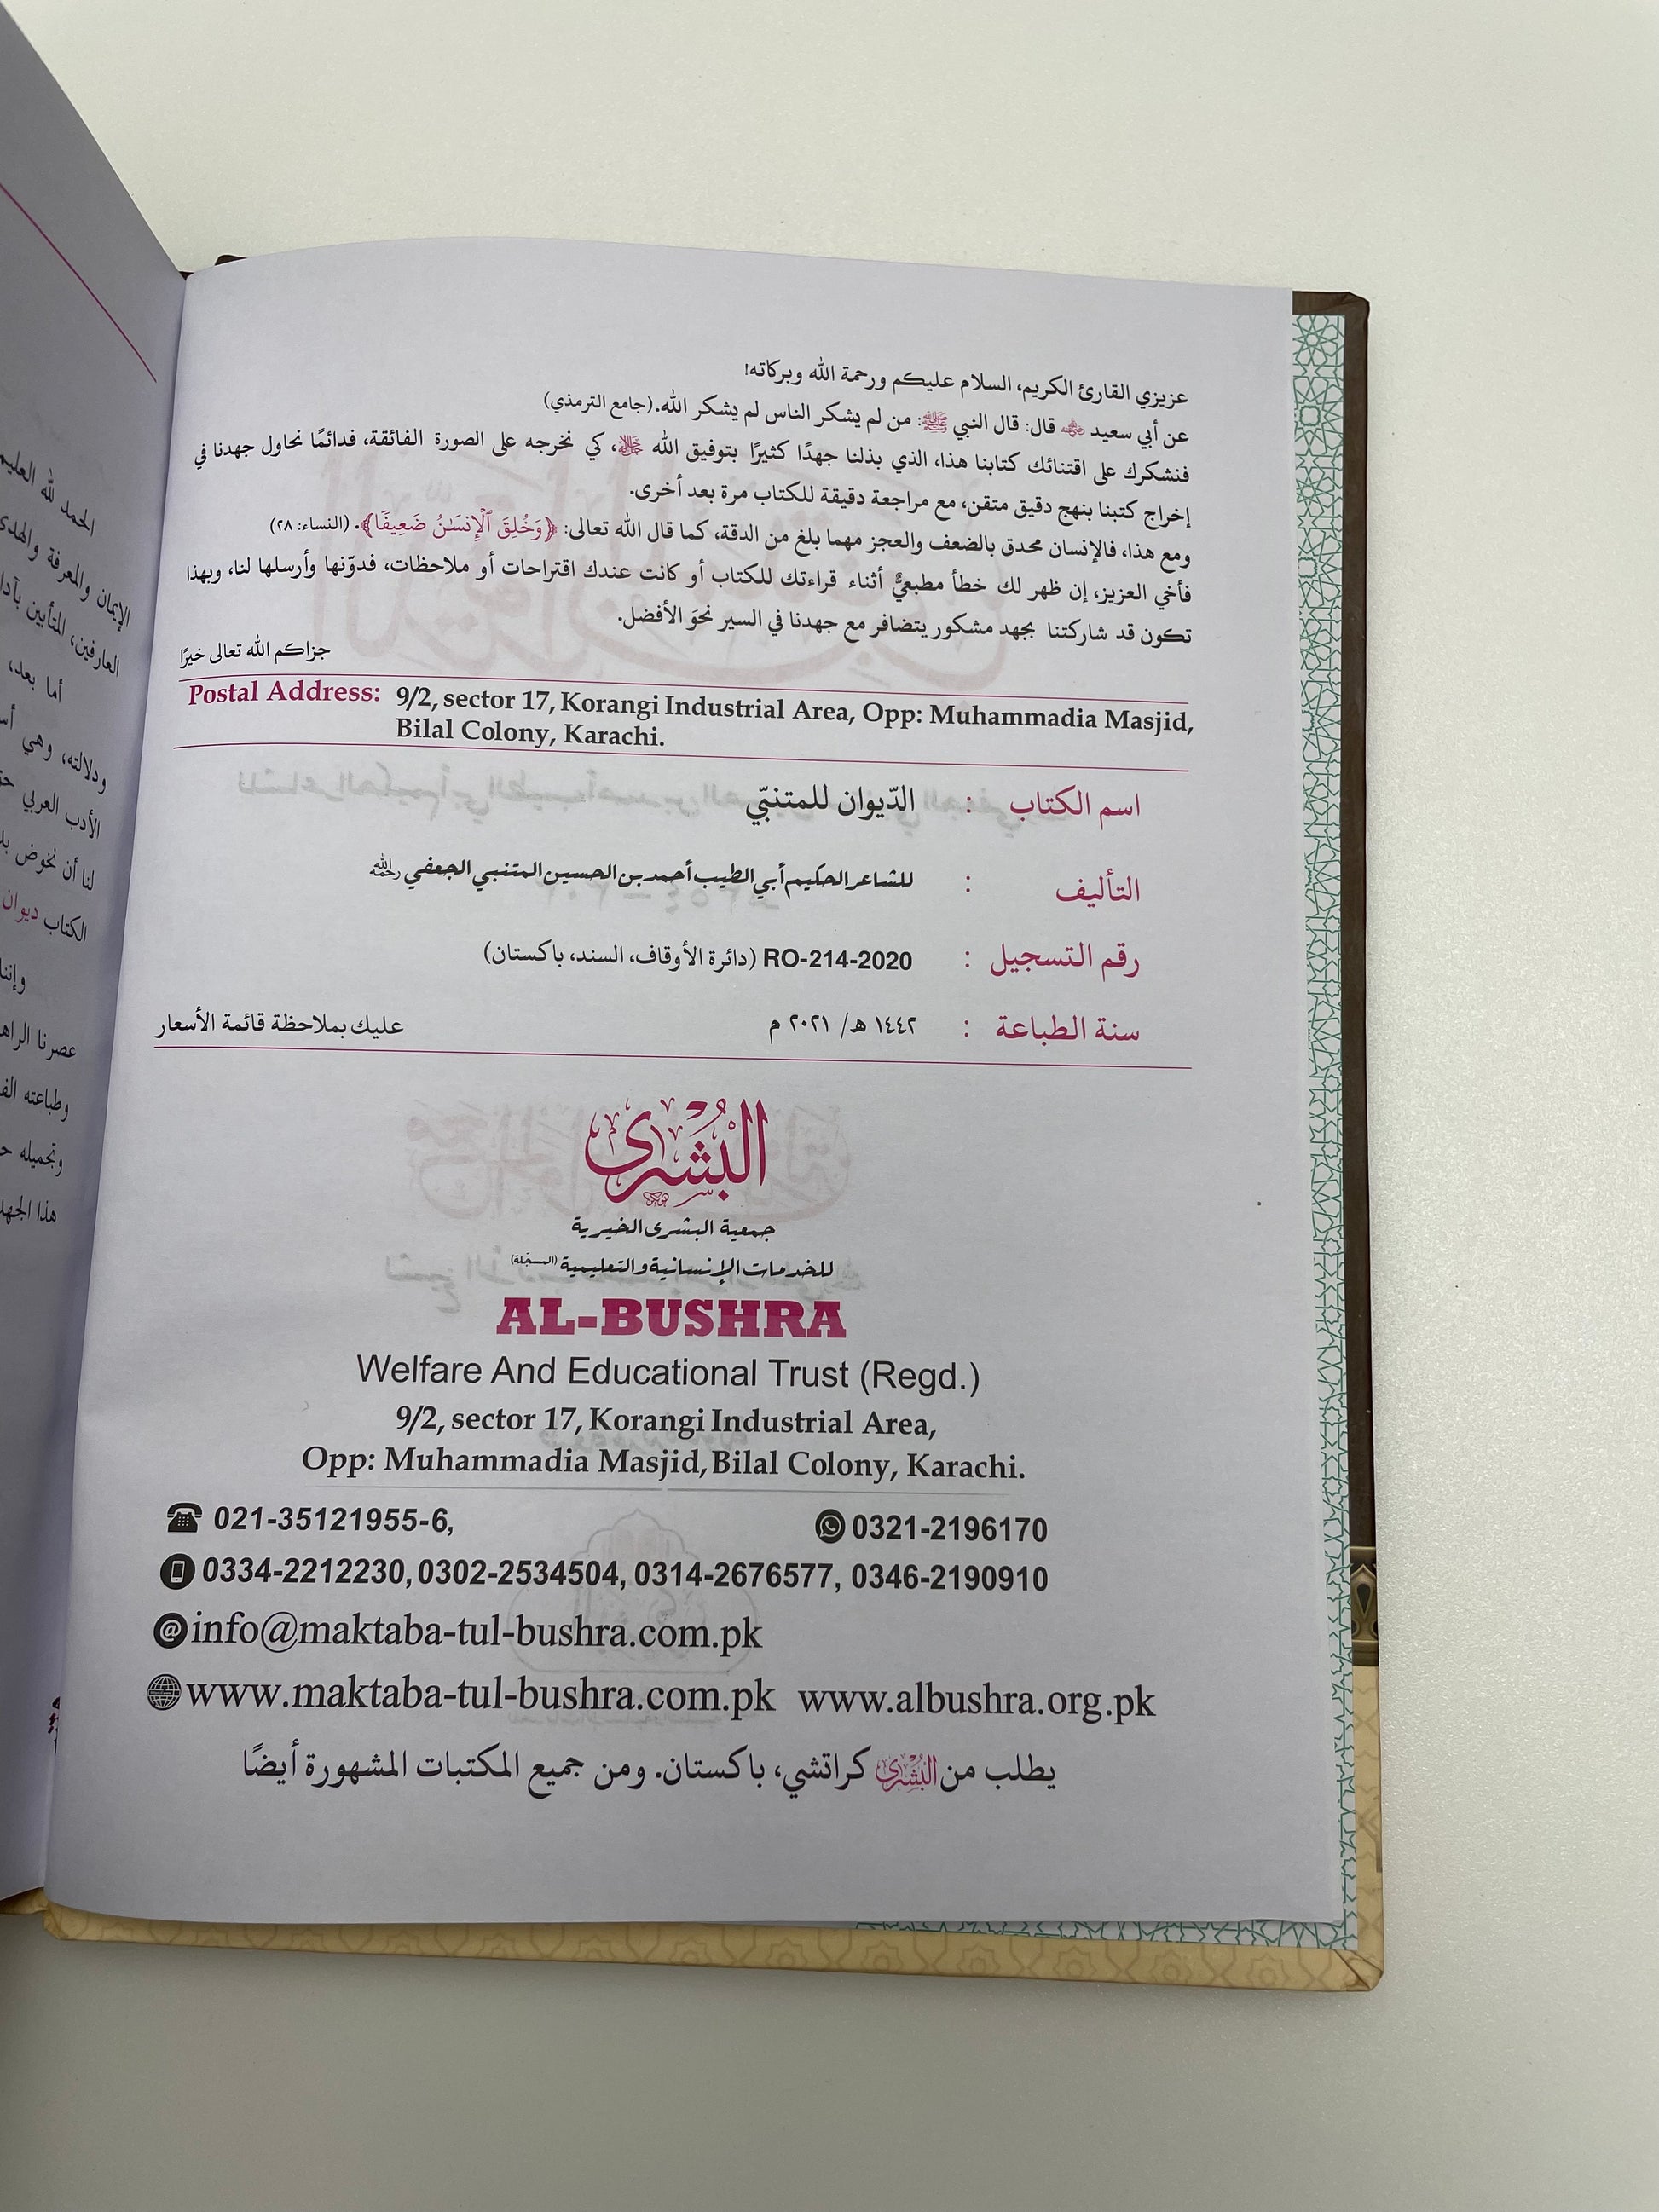 عزيزي القارئ الكريم، السلام عليكم ورحمة الله وبركاته!
عن أبي سعيد رضي الله عنه قال: قال النبي ﷺ: من لم يشكر الناس لم يشكر الله. (جامع الترمذي)
فنشكرك على اقتنائك كتابنا هذا، الذي بذلنا جهدًا كثيرًا بتوفيق الله ﷻ، كي نخرجه على الصورة الفائقة، فدائمًا نحاول جهدنا في
إخراج كتبنا بنهج دقيق متقن، مع مراجعة دقيقة للكتاب مرة بعد أخرى.
ومع هذا، فالإنسان محدق بالضعف والعجز مهما بلغ من الدقة، كما قال الله تعالى: ﴿وَخُلِقَ ٱلْإِنسَٰنُ ضَعِيفًا﴾. (النساء: ٢٨)
فأخي العزيز، إن ظهر لك خطأ مطبعيٌّ أثناء قراءتك للكتاب أو كانت عندك اقتراحات أو ملاحظات، فدوّنها وأرسلها لنا، وبهذا
تكون قد شاركتنا بجهد مشكور يتضافر مع جهدنا في السير نحوَ الأفضل.
جزاكم الله تعالى خيرًا
Postal Address: 9/2, sector 17, Korangi Industrial Area, Opp: Muhammadia Masjid,
Bilal Colony, Karachi.
اسم الكتاب : الدّيوان للمتنبّي
التأليف : للشاعر الحكيم أبي الطيب أحمد بن الحسين المتنبي الجعفي رحمه الله
رقم التسجيل : RO-214-2020 (دائرة الأوقاف، السند، باكستان)
سنة الطباعة : ١٤٤٢ هـ/ ٢٠٢١ م عليك بملاحظة قائمة الأسعار
البُشْرى
جمعية البشرى الخيرية
للخدمات الإنسانية والتعليمية (المسجّلة)
AL-BUSHRA
Welfare And Educational Trust (Regd.)
9/2, sector 17, Korangi Industrial Area,
Opp: Muhammadia Masjid, Bilal Colony, Karachi.
021-35121955-6, 0321-2196170
0334-2212230, 0302-2534504, 0314-2676577, 0346-2190910
info@maktaba-tul-bushra.com.pk
www.maktaba-tul-bushra.com.pk www.albushra.org.pk
يطلب من البُشْرى كراتشي، باكستان. ومن جميع المكتبات المشهورة أيضًا
الحمد لله العليم
الإيمان والمعرفة والهدى
العارفين، المتأبين بآدا
أما بعد،
ودلالته، وهي
الأدب العربي
لنا أن نخوض
الكتاب ديوان
عصرنا الراه
هذا الجهد